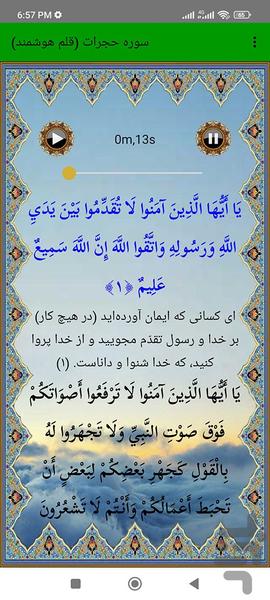 6:57 PM
سوره حجرات (قلم هوشمند)
0m,13s
يَا أَيُّهَا الَّذِينَ آمَنُوا لَا تُقَدِّمُوا بَيْنَ يَدَيِ
اللَّهِ وَرَسُولِهِ وَاتَّقُوا اللَّهَ إِنَّ اللَّهَ سَمِيعٌ
عَلِيمٌ ﴿۱﴾
ای کسانی که ایمان آورده‌اید (در هیچ کار)
بر خدا و رسول تقدّم مجویید و از خدا پروا
کنید، که خدا شنوا و داناست. (۱)
يَا أَيُّهَا الَّذِينَ آمَنُوا لَا تَرْفَعُوا أَصْوَاتَكُمْ
فَوْقَ صَوْتِ النَّبِيِّ وَلَا تَجْهَرُوا لَهُ
بِالْقَوْلِ كَجَهْرِ بَعْضِكُمْ لِبَعْضٍ أَنْ
تَحْبَطَ أَعْمَالُكُمْ وَأَنْتُمْ لَا تَشْعُرُونَ